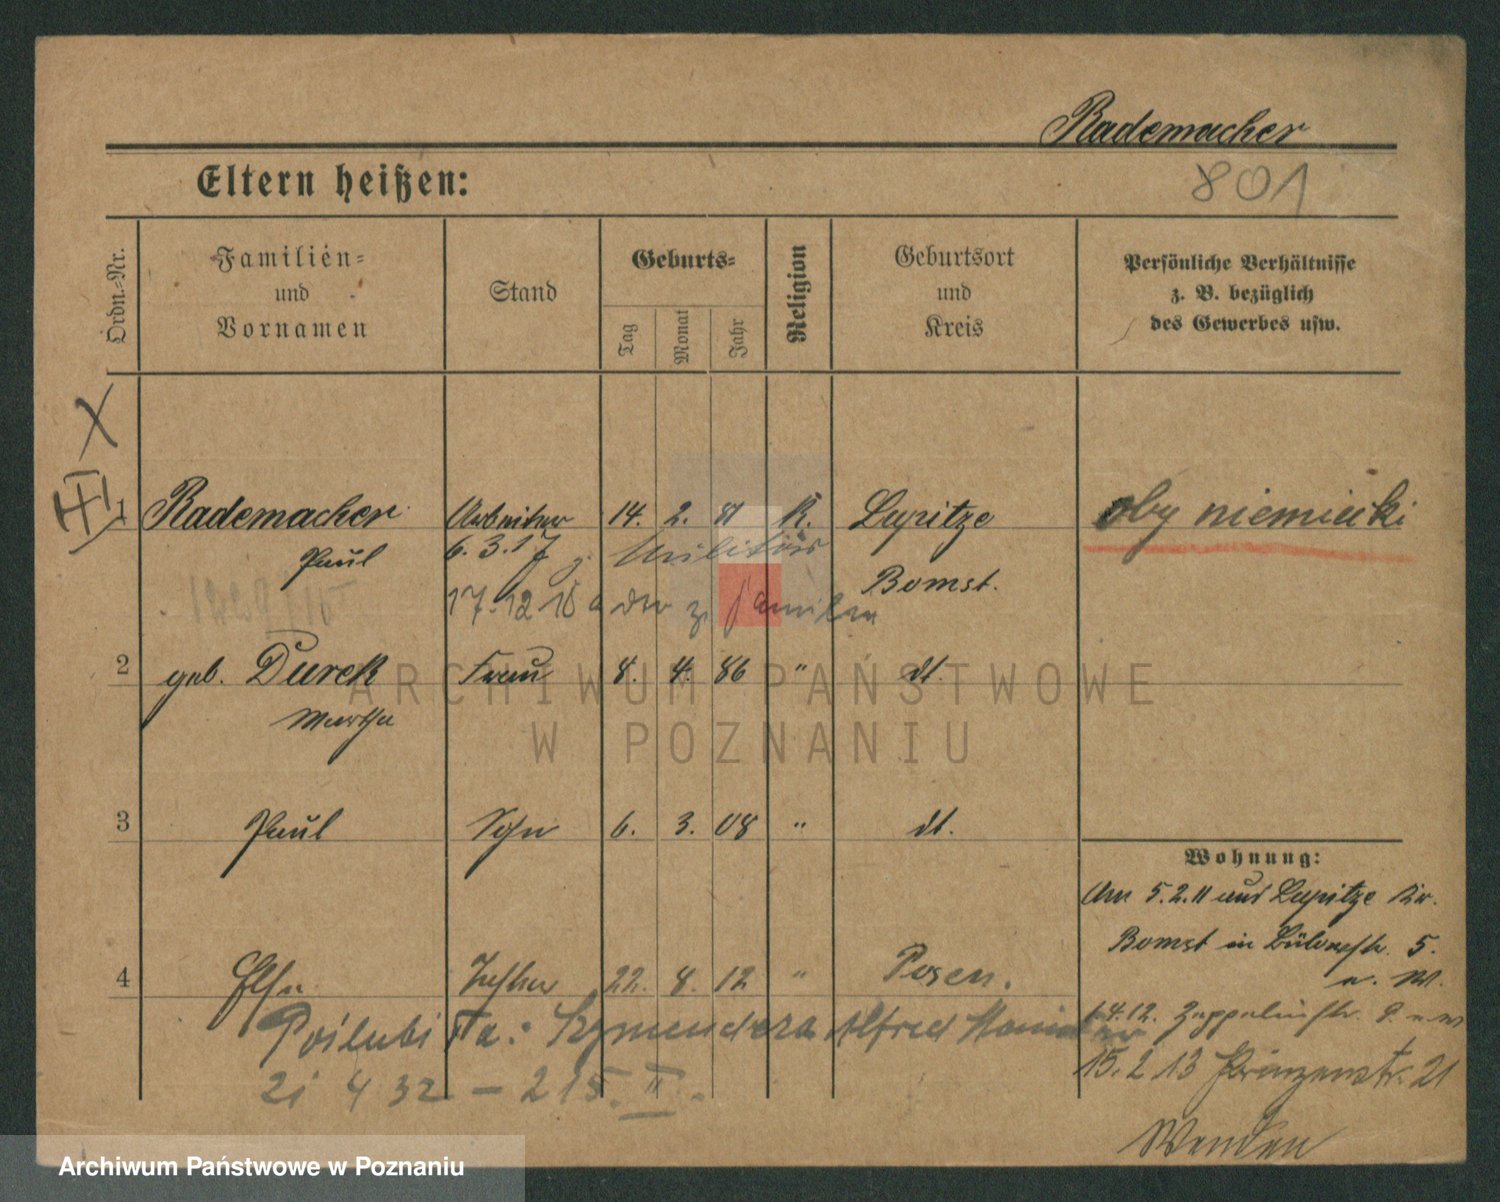 Rademacher
801
Eltern heißen:
Ordn.-Nr.
Familien- und Vornamen
Stand
Geburts-
Tag
Monat
Jahr
Religion
Geburtsort und Kreis
Persönliche Verhältnisse
z. B. bezüglich
des Gewerbes usw.
X
III
1 Rademacher Arbeiter 14. 2. 81 K. Lupitze oby niemiecki
Paul 6. 3. 17 z. Militär Bomst.
17. 12 18 v der z. Familien
2 geb. Durek Frau 8. 4. 86 " dt.
Martha
ARCHIWUM PAŃSTWOWE
W POZNANIU
3 Paul Sohn 6. 3. 08 " dt.
Wohnung:
Am 5.2.11 aus Lupitze Kr.
Bomst in Bülowstr. 5.
4 Else Tochter 22. 8. 12 " Posen.
1.4.12. Zeppelinstr.
Poślubi Szymendera Alfred
15. 2 13 Prinzenstr. 21
21 4 32 – 215. II.
Archiwum Państwowe w Poznaniu